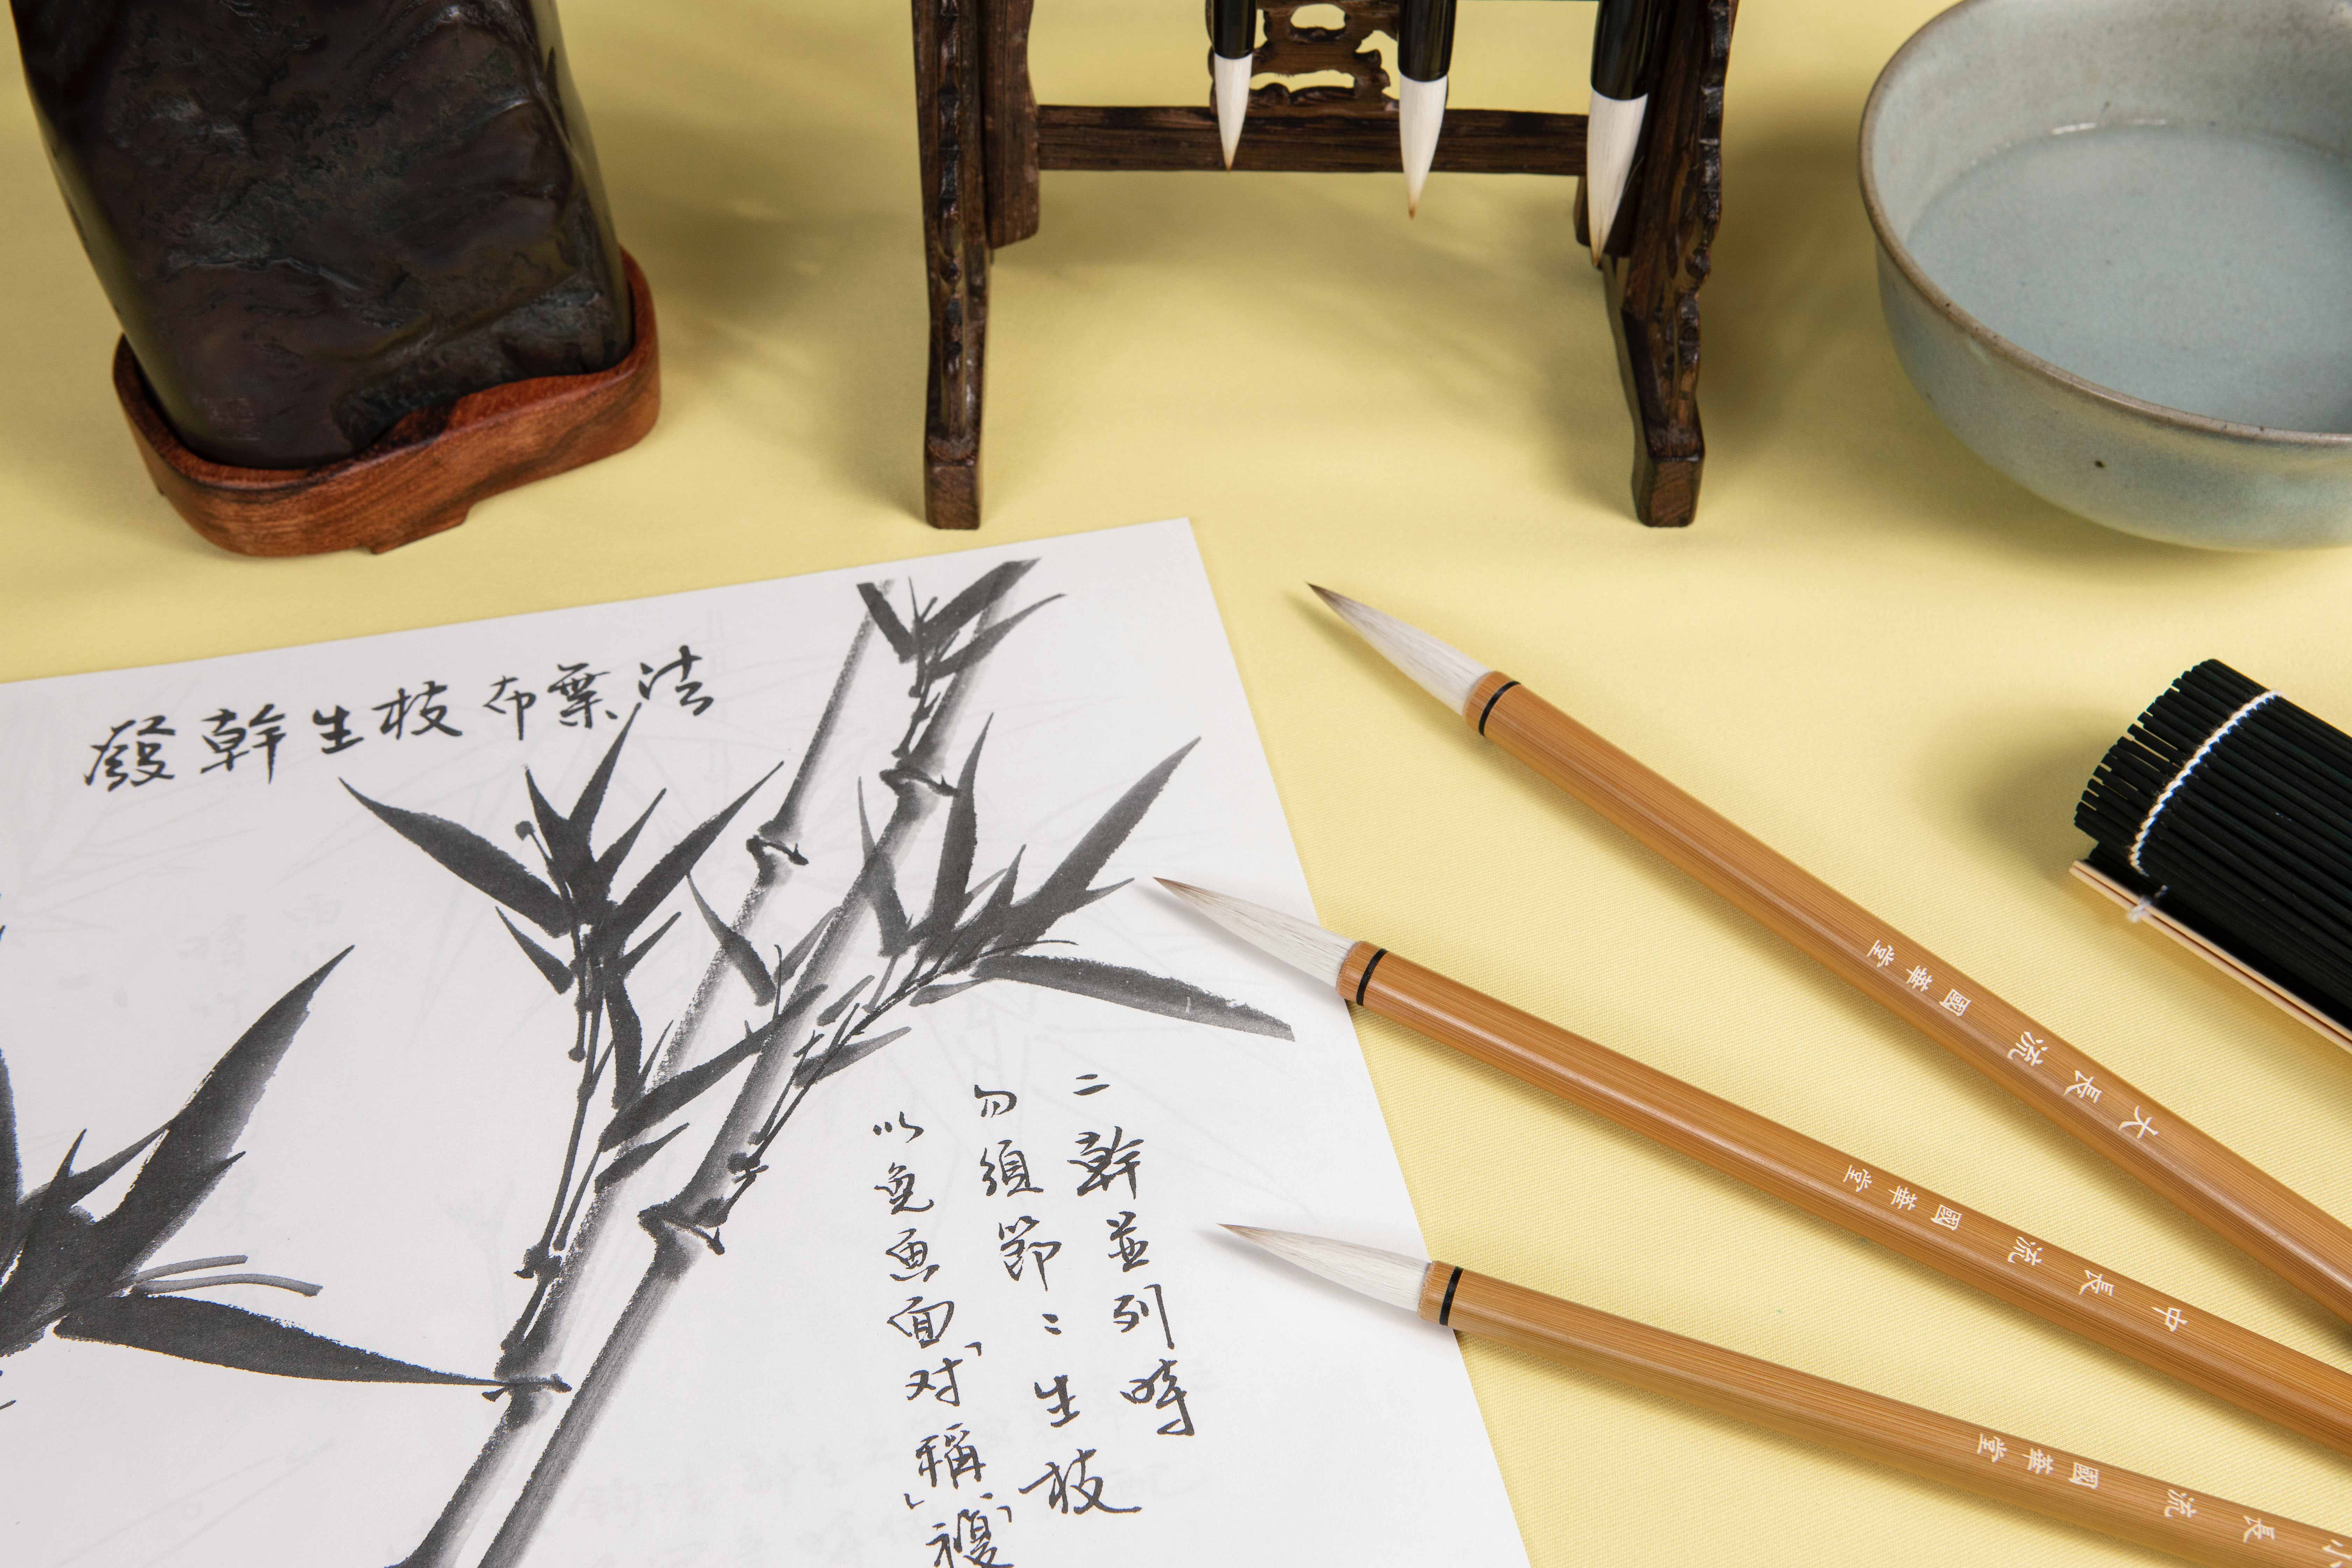 發幹生枝布葉法
二幹並列時
勿須節〻生枝
以免画面「对稱」、「複
大長流 國華堂
中長流 國華堂
長流 國華堂